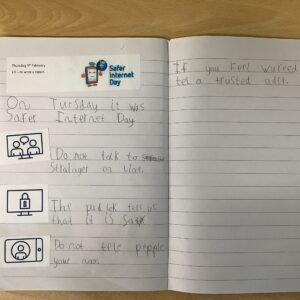 Thursday 9th February
LO: - to write a report
Safer
Internet
Day
On Tuesday it was
Safer Internet Day
Do not talk to
Stranger on
The pad lok tell us
that it is safe
Do not tele people
your nam.
If you feel wureed
tel a trusted adlt.